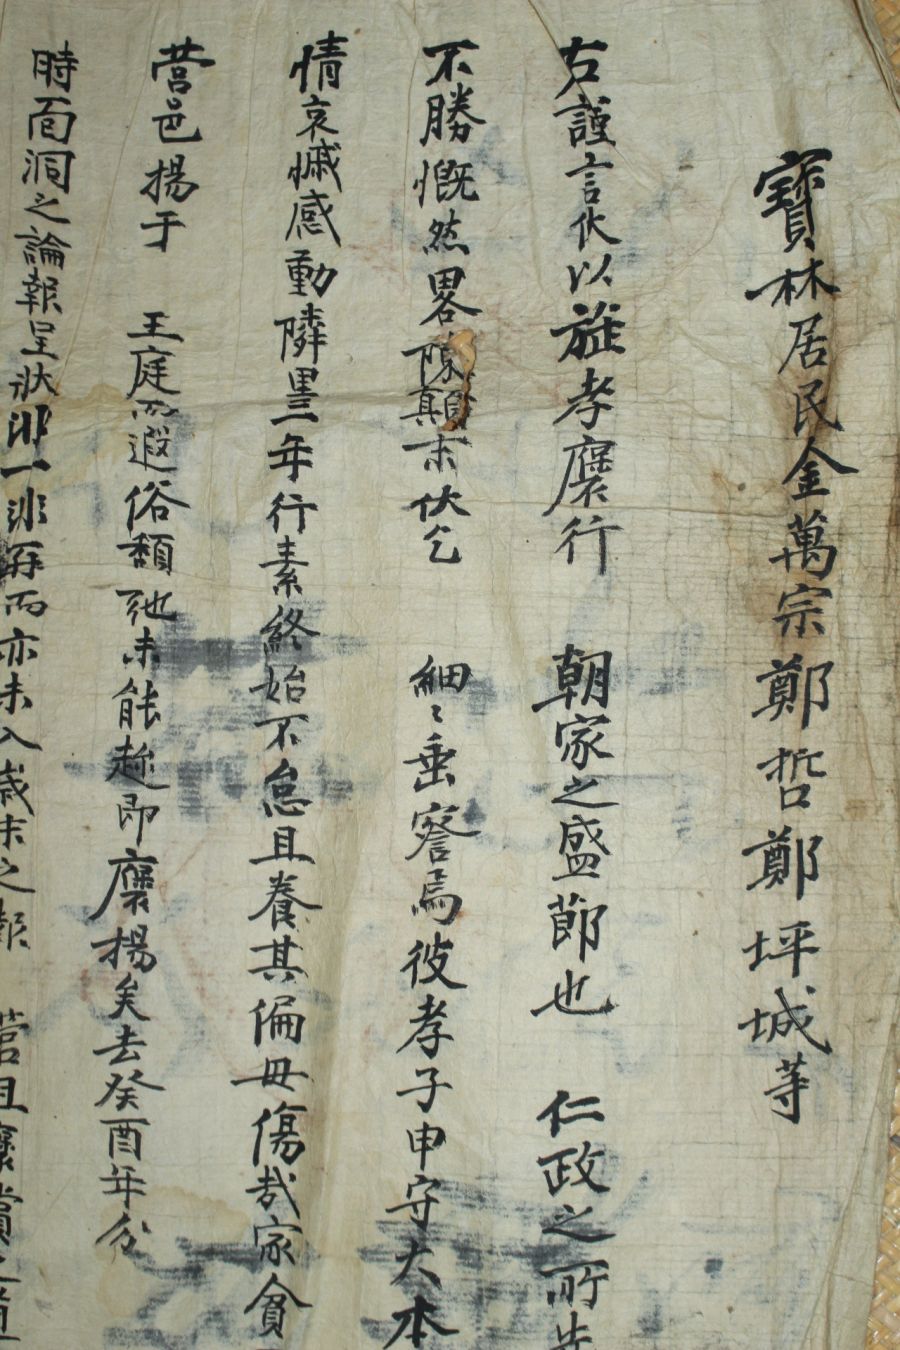 寶林居民金萬宗鄭哲鄭坪城等
右謹言伏以旌孝褒行 朝家之盛節也 仁政之所先
不勝慨然畧陳顚末伏乞 細〻垂察焉彼孝子申守大本
情哀慽感動隣里三年行素終始不怠且養其偏母傷哉家貧
營邑揚于 王庭而遐俗頹弛未能趂即褒揚矣去癸酉年分
時面洞之論報呈狀非一非再而亦未入歲末之報 營且褒賞之道